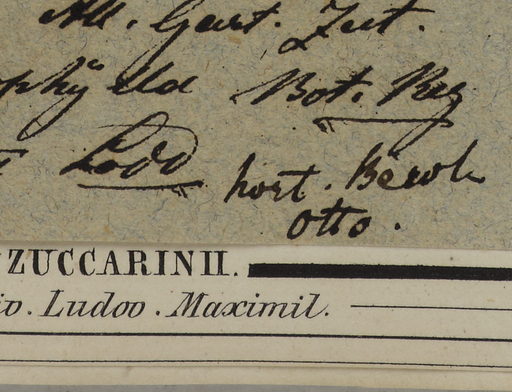 All. Gart. Zeit.
Bot. Reg
Lodd hort. Berol.
Otto.
ZUCCARINII.
iv. Ludov. Maximil.